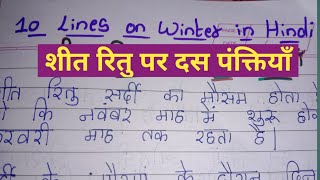 10 Lines on Winter in Hindi
शीत रितु पर दस पंक्तियाँ
रितु सर्दी का मौसम होता
कि नवंबर माह में शुरू
माह तक रहता है।
के दौरान दिन